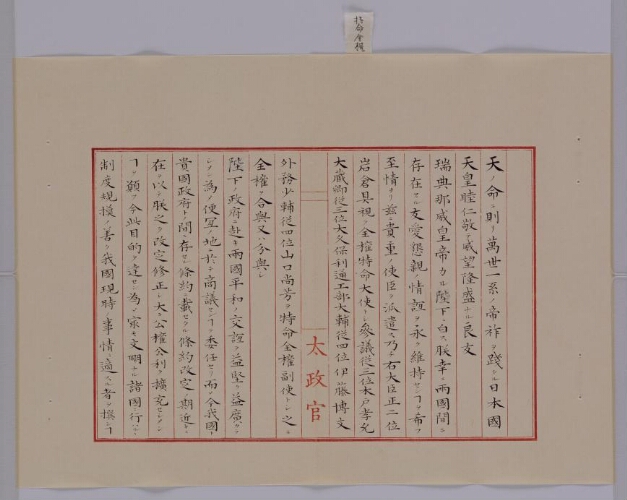 天ノ命ニ則リ萬世一系ノ帝祚ヲ踐タル日本國
天皇睦仁敬テ威望隆盛ナル良友
瑞典那威皇帝カル陛下ニ白ス朕幸ニ兩國間ニ
存在セル友愛懇親ノ情誼ヲ永ク維持センヿヲ希フ
至情ヨリ茲ニ貴重ノ使臣ヲ派遣ス乃チ右大臣正二位
岩倉具視ヲ全權特命大使トシ參議從三位木戸孝允
大藏卿從三位大久保利通工部大輔從四位伊藤博文
太政官
外務少輔從四位山口尚芳ヲ特命全權副使トシ之ニ
全權ヲ合與シ又ハ分與シ
陛下ノ政府ニ赴キ兩國平和ノ交誼ヲ益堅シ益廣クセ
シメン為ノ便宜ノ地ニ於テ商議センヿヲ委任セリ而シテ今我國ト
貴國政府ト間ニ存セル條約ニ載セタル條約改定ノ期近キニ
在ルヲ以テ朕之ヲ改定修正シ大ニ公權公利ヲ擴充セシメン
ヿヲ願フ今此目的ヲ達セン為メ宗キ文明ナル諸國行ハルヽ
制度規模ノ善ク我國現時ノ事情ニ適スル者ヲ撰ミテ